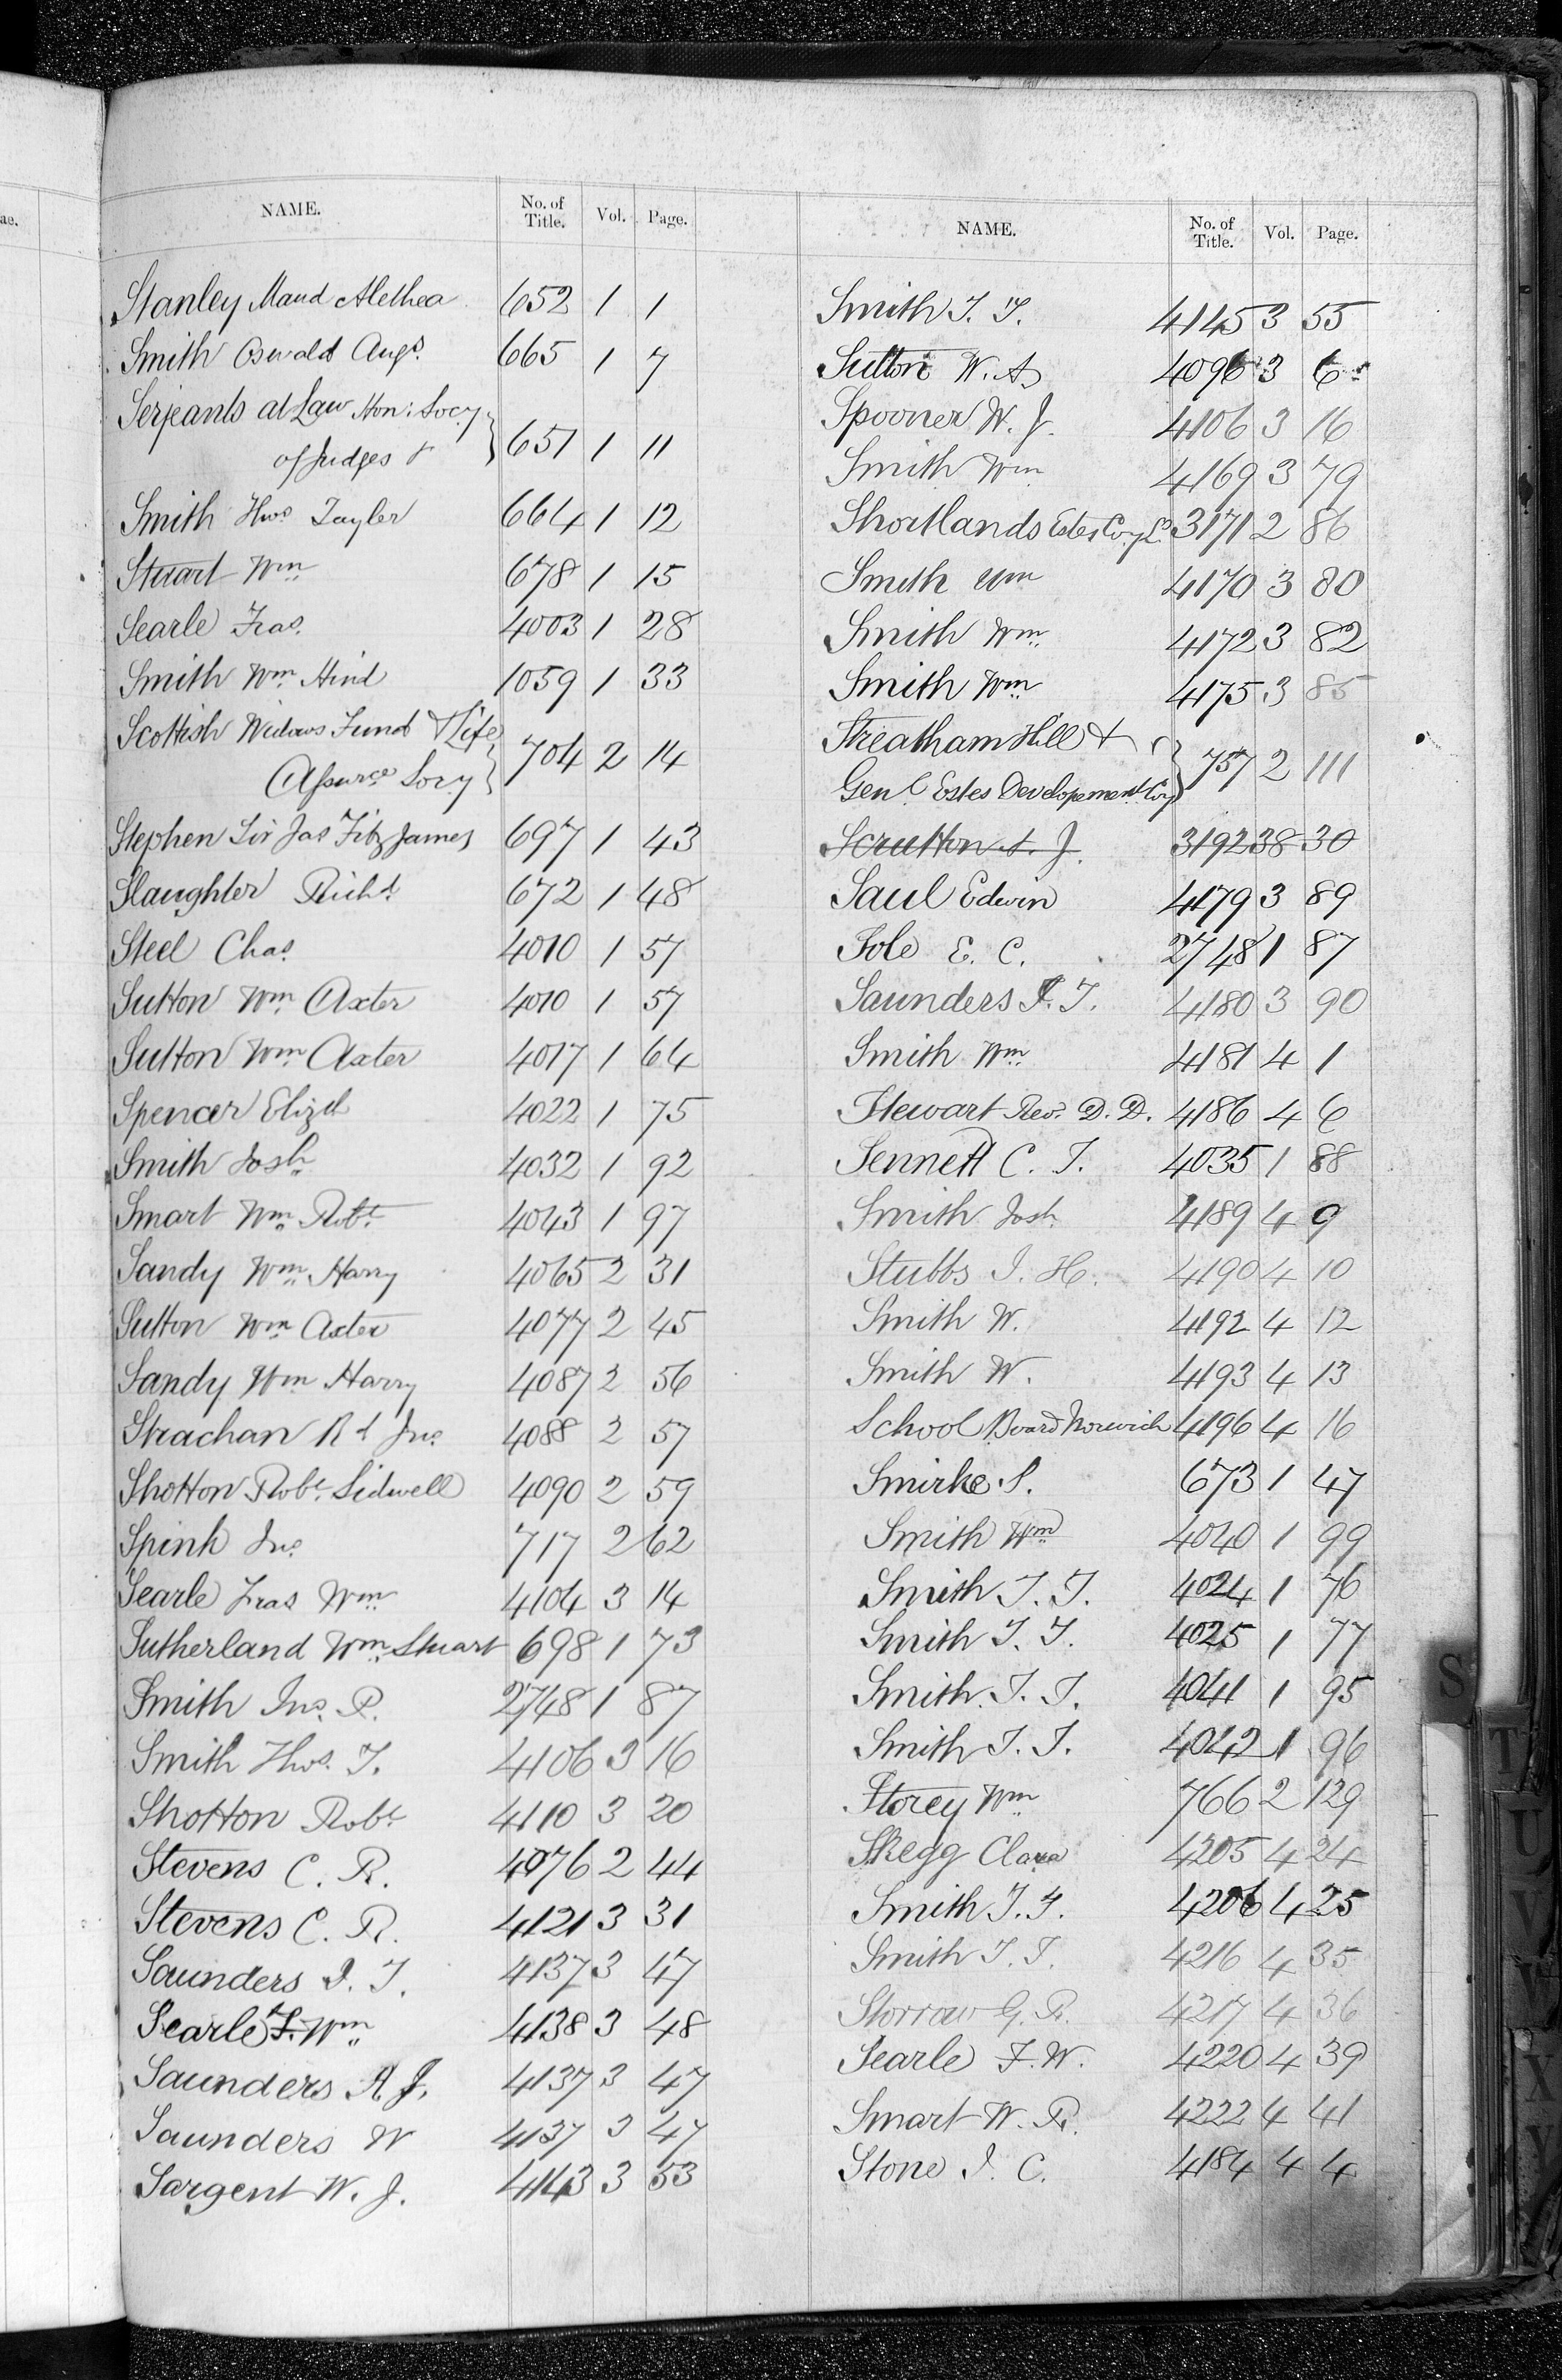 ae.
NAME. No. of Title. Vol. Page.
Stanley Maud Alethea 652 1 1
Smith Oswald Augs. 665 1 7
Serjeants at Law Hon: Socy
of Judges & 651 1 11
Smith Thos. Tayler 664 1 12
Stuart Wm 678 1 15
Searle Fras. 4003 1 28
Smith Wm. Hind 1059 1 33
Scottish Widows Fund & Life
Assurce Socy 704 2 14
Stephen Sir Jas Fitz James 697 1 43
Slaughter Richd. 672 1 48
Steel Chas. 4010 1 57
Sutton Wm. Axter 4010 1 57
Sutton Wm. Axter 4017 1 64
Spencer Elizth 4022 1 75
Smith Josh. 4032 1 92
Smart Wm. Robt. 4043 1 97
Sandy Wm. Harry 4065 2 31
Sutton Wm. Axter 4077 2 45
Sandy Wm Harry 4087 2 56
Strachan Rd Jno. 4088 2 57
Shotton Robt. Sidwell 4090 2 59
Spink Jno. 717 2 62
Searle Fras Wm. 4104 3 14
Sutherland Wm. Stuart 698 1 73
Smith Jno. P. 2748 1 87
Smith Thos. T. 4106 3 16
Shotton Robt. 4110 3 20
Stevens C. R. 4076 2 44
Stevens C. R. 4121 3 31
Saunders J. T. 4137 3 47
Searle F. Wm. 4138 3 48
Saunders A. J. 4137 3 47
Saunders W 4137 3 47
Sargent W. J. 4143 3 53
NAME. No. of Title. Vol. Page.
Smith T. T. 4145 3 55
Sutton W. A. 4096 3 6
Spooner W. J. 4106 3 16
Smith Wm. 4169 3 79
Shortlands Estes Coy Ld. 3171 2 86
Smith Wm 4170 3 80
Smith Wm. 4172 3 82
Smith Wm 4175 3 85
Streatham Hill &
Genl. Estes Developement Coy 757 2 111
Scrutton A. J. 3192 38 30
Saul Edwin 4179 3 89
Sole E. C. 2748 1 87
Saunders J. T. 4180 3 90
Smith Wm. 4181 4 1
Stewart Revd. D. D. 4186 4 6
Sennett C. T. 4035 1 88
Smith Josh. 4189 4 9
Stubbs J. H. 4190 4 10
Smith W. 4192 4 12
Smith W. 4193 4 13
School Board Norwich 4196 4 16
Smirke S. 673 1 47
Smith Wm. 4040 1 99
Smith T. T. 4024 1 76
Smith T. T. 4025 1 77
Smith T. T. 4041 1 95
Smith T. T. 4042 1 96
Storey Wm. 766 2 129
Skegg Clara 4205 4 24
Smith T. T. 4206 4 25
Smith T. T. 4216 4 35
Storrar G. R. 4217 4 36
Searle F. W. 4220 4 39
Smart W. R. 4222 4 41
Stone J. C. 4184 4 4
S
T
U
V
W
X
Y